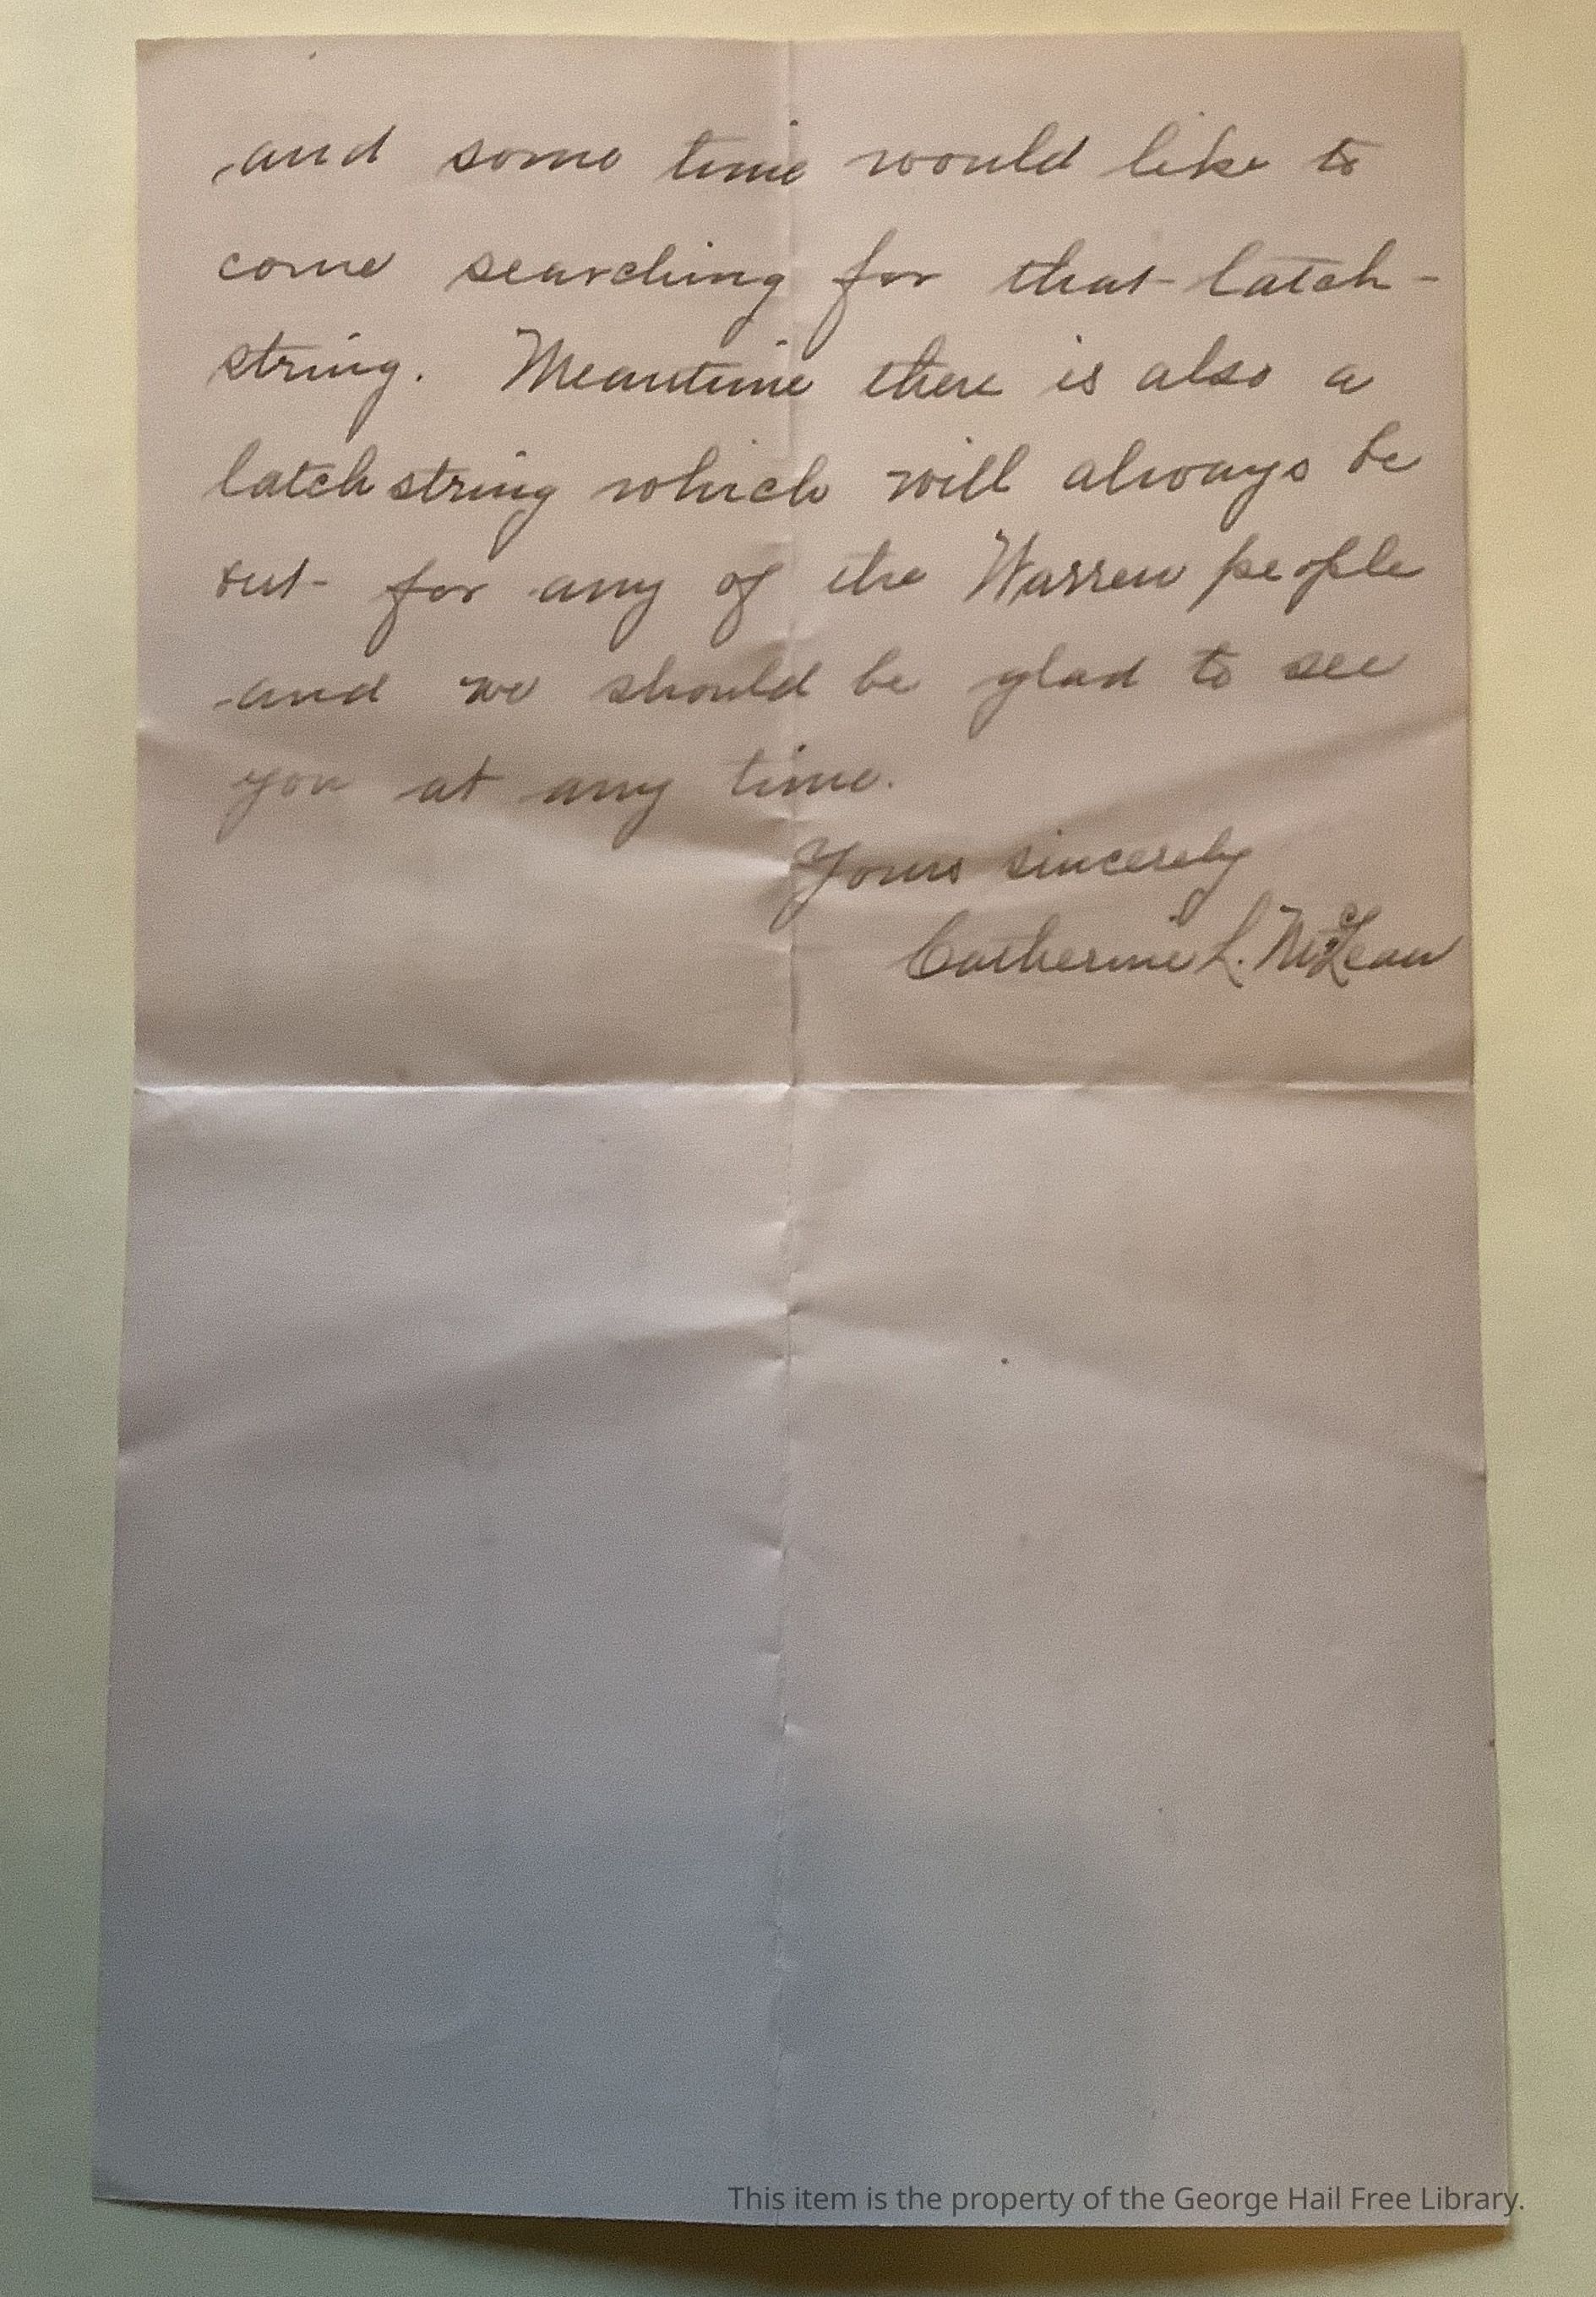 and some time would like to
come searching for that latch-
string. Meantime there is also a
latchstring which will always be
out for any of the Warren people
and we should be glad to see
you at any time.
Yours sincerely
Catherine L. McLean
This item is the property of the George Hail Free Library.